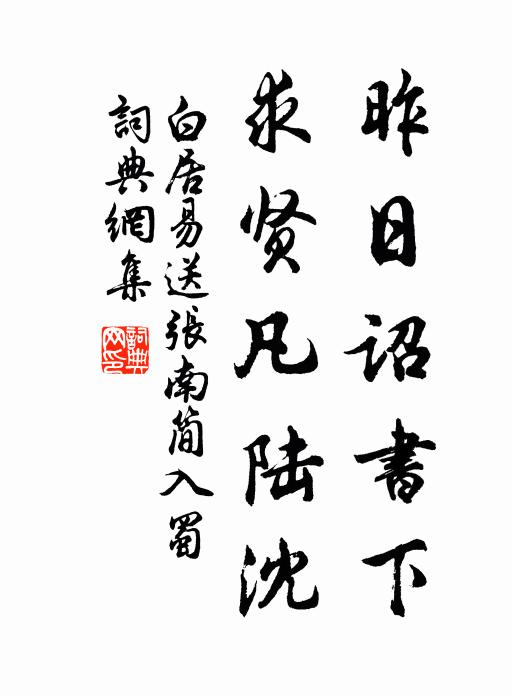 昨日诏書下
求贤凡陆沈
白居易送張南简入蜀
詞典網集
詞典网印